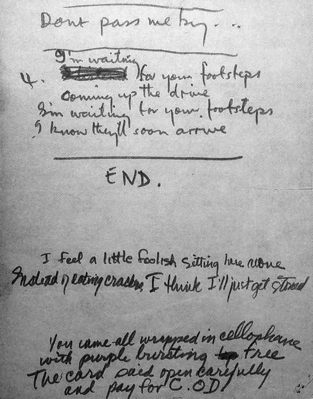 Dont pass me by...
I'm waiting
4. for your footsteps
coming up the drive
I'm waiting for your footsteps
I know they'll soon arrive
END.
I feel a little foolish sitting here alone
Instead of eating crackers, I think I'll just get stoned
You came all wrapped in cellophane
with purple bursting free
The card said open carefully
and pay for C.O.D.